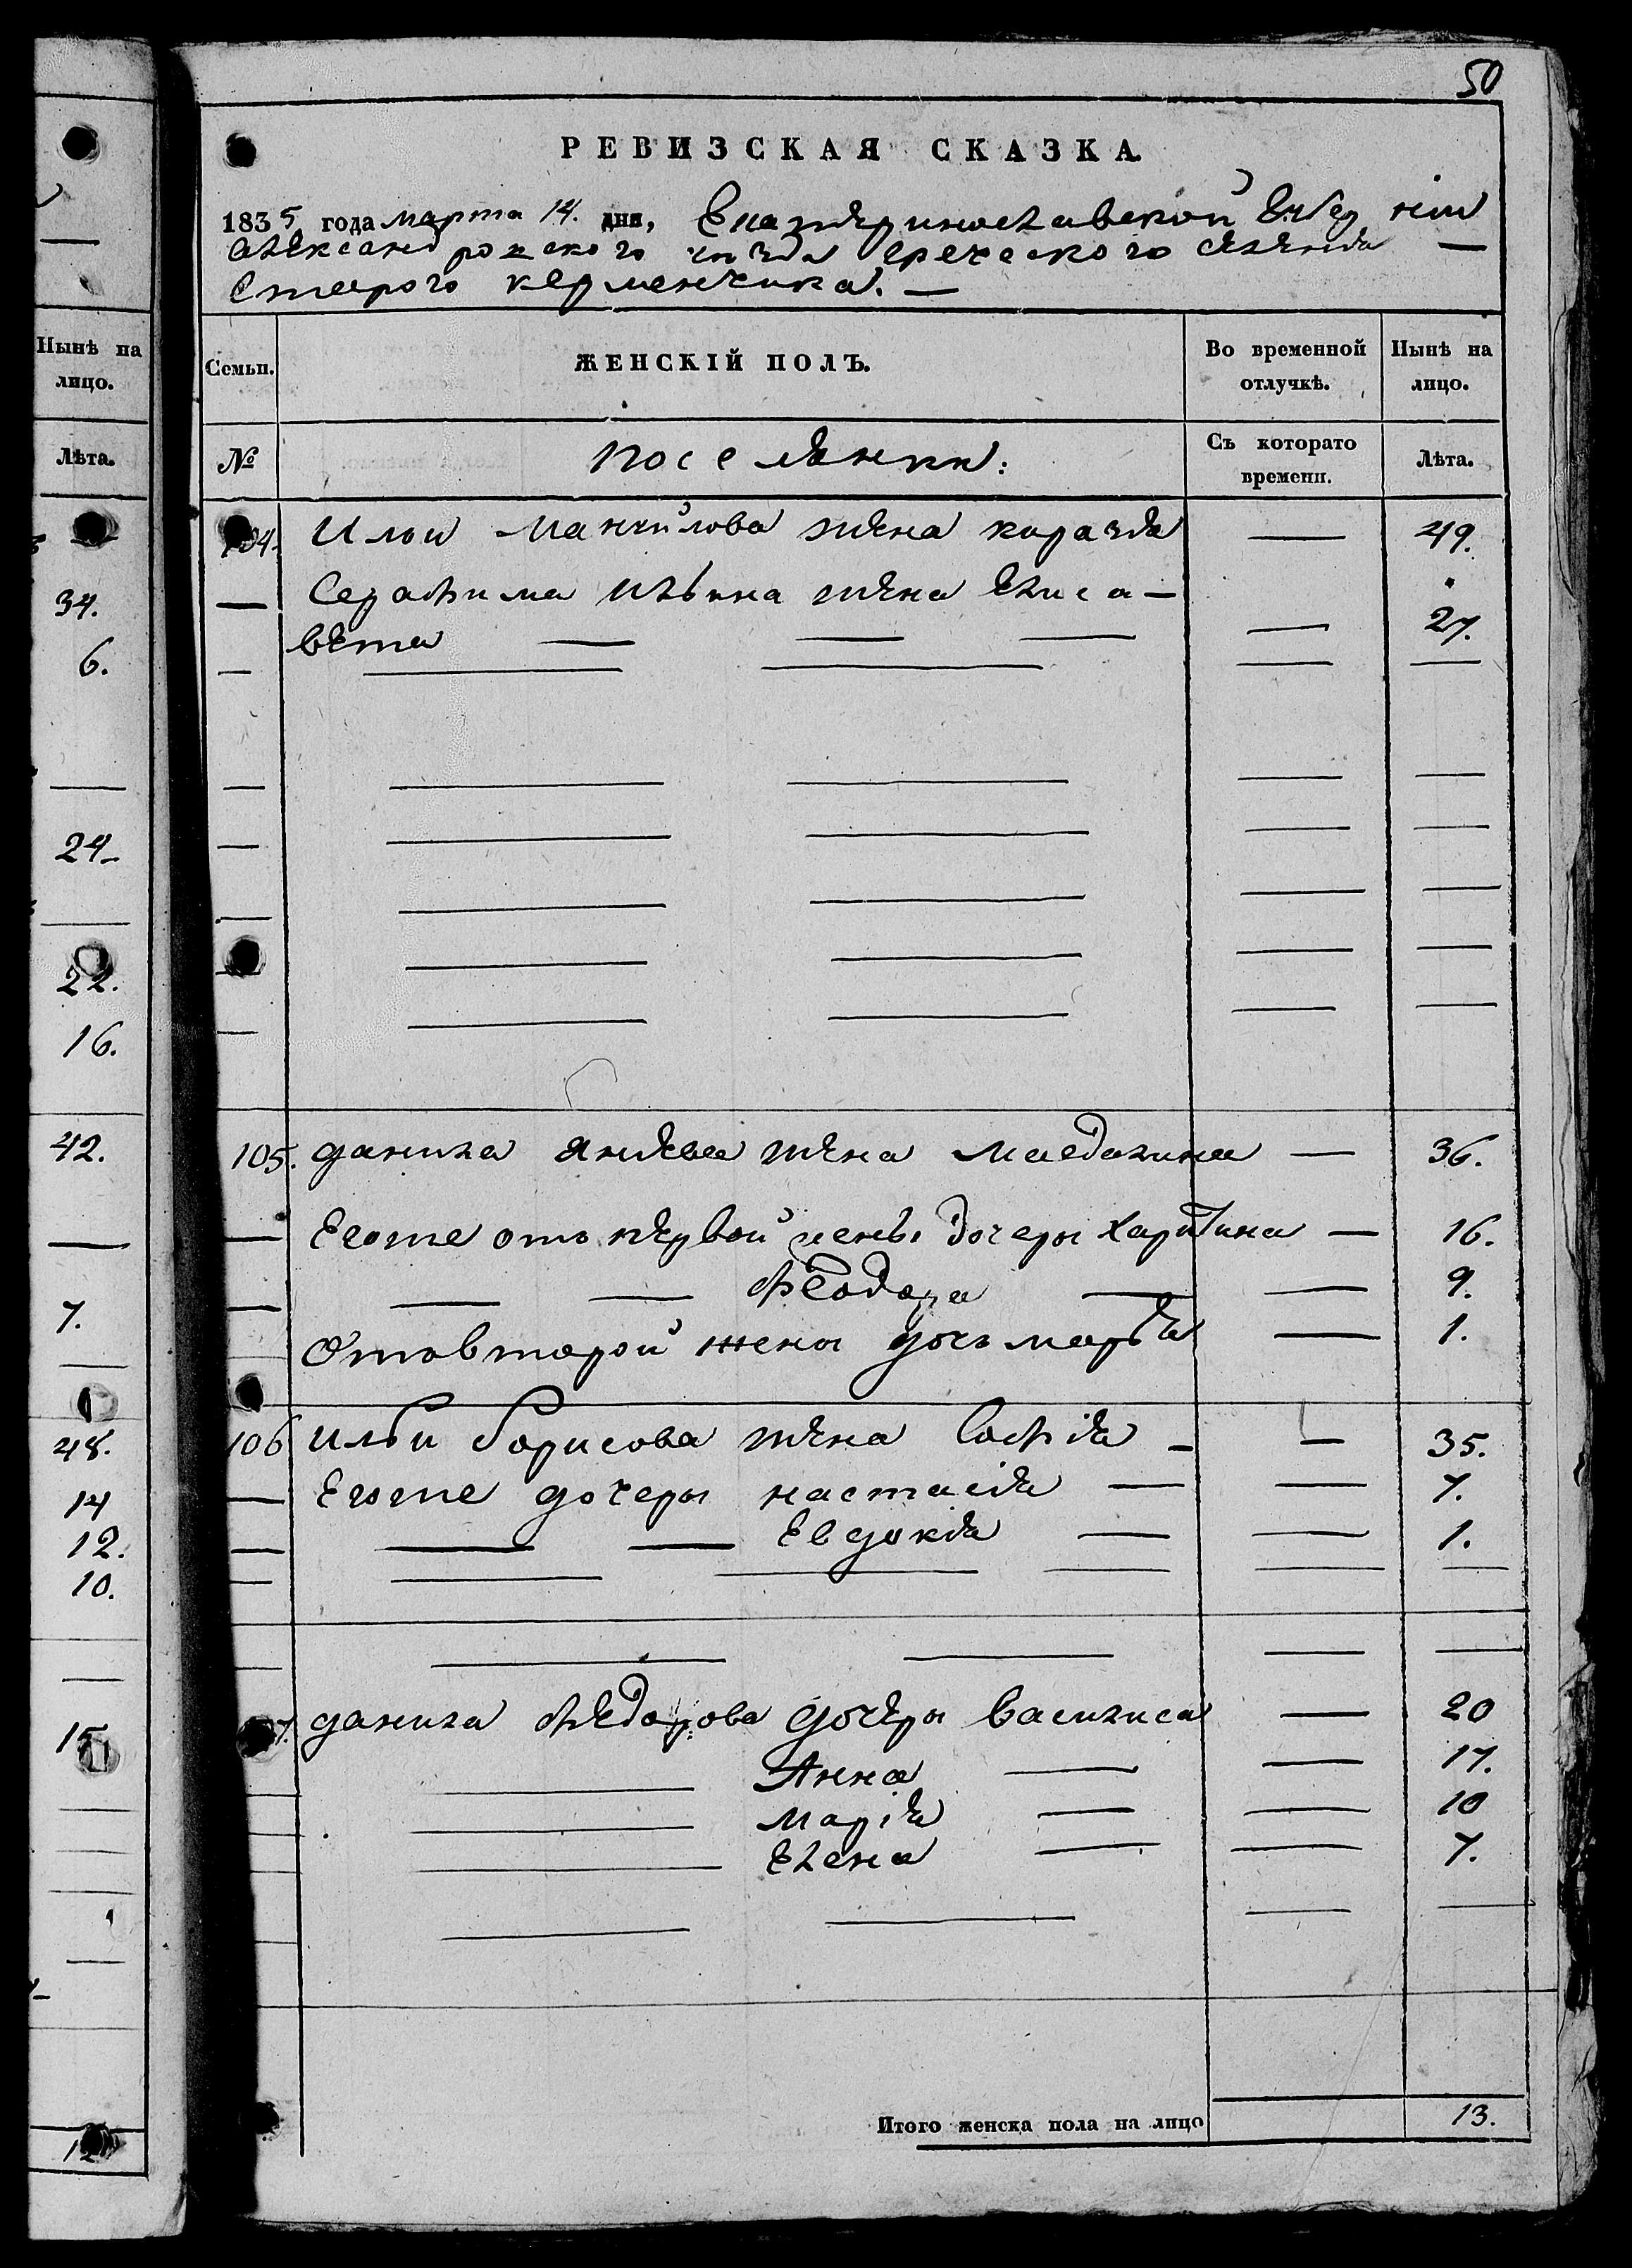 50
РЕВИЗСКАЯ СКАЗКА.
1835 года марта 14. дня, Екатериносլавской
Александровского уезда греческого селения —
Старого керменчика. —
Нынѣ на
лицо.
Лѣта.
34.
6.
24.
22.
16.
42.
7.
48.
14
12.
10.
15
Семьи.
ЖЕНСКІЙ ПОЛЪ.
Во временной
отлучкѣ.
Нынѣ на
лицо.
№
поселянки:
Съ которато
времени.
Лѣта.
104. Ильи жена — 49.
Серафима Ильина жена Елиса—
вета — — — — 27.
105. Данила жена Магдалина — 36.
— Егоже отъ первой жены дочери Харитина — 16.
— — — Феодора — — 9.
Отъ второй жены дочь — 1.
106 Ильи Борисова жена Софія — — 35.
— Егоже дочери настасія — — 7.
— — — Евдокія — — 1.
7. Данила Федорова дочери Василиса — 20
— Анна — — 17.
— Марія — — 10
— Елена — — 7.
Итого женска пола на лицо 13.